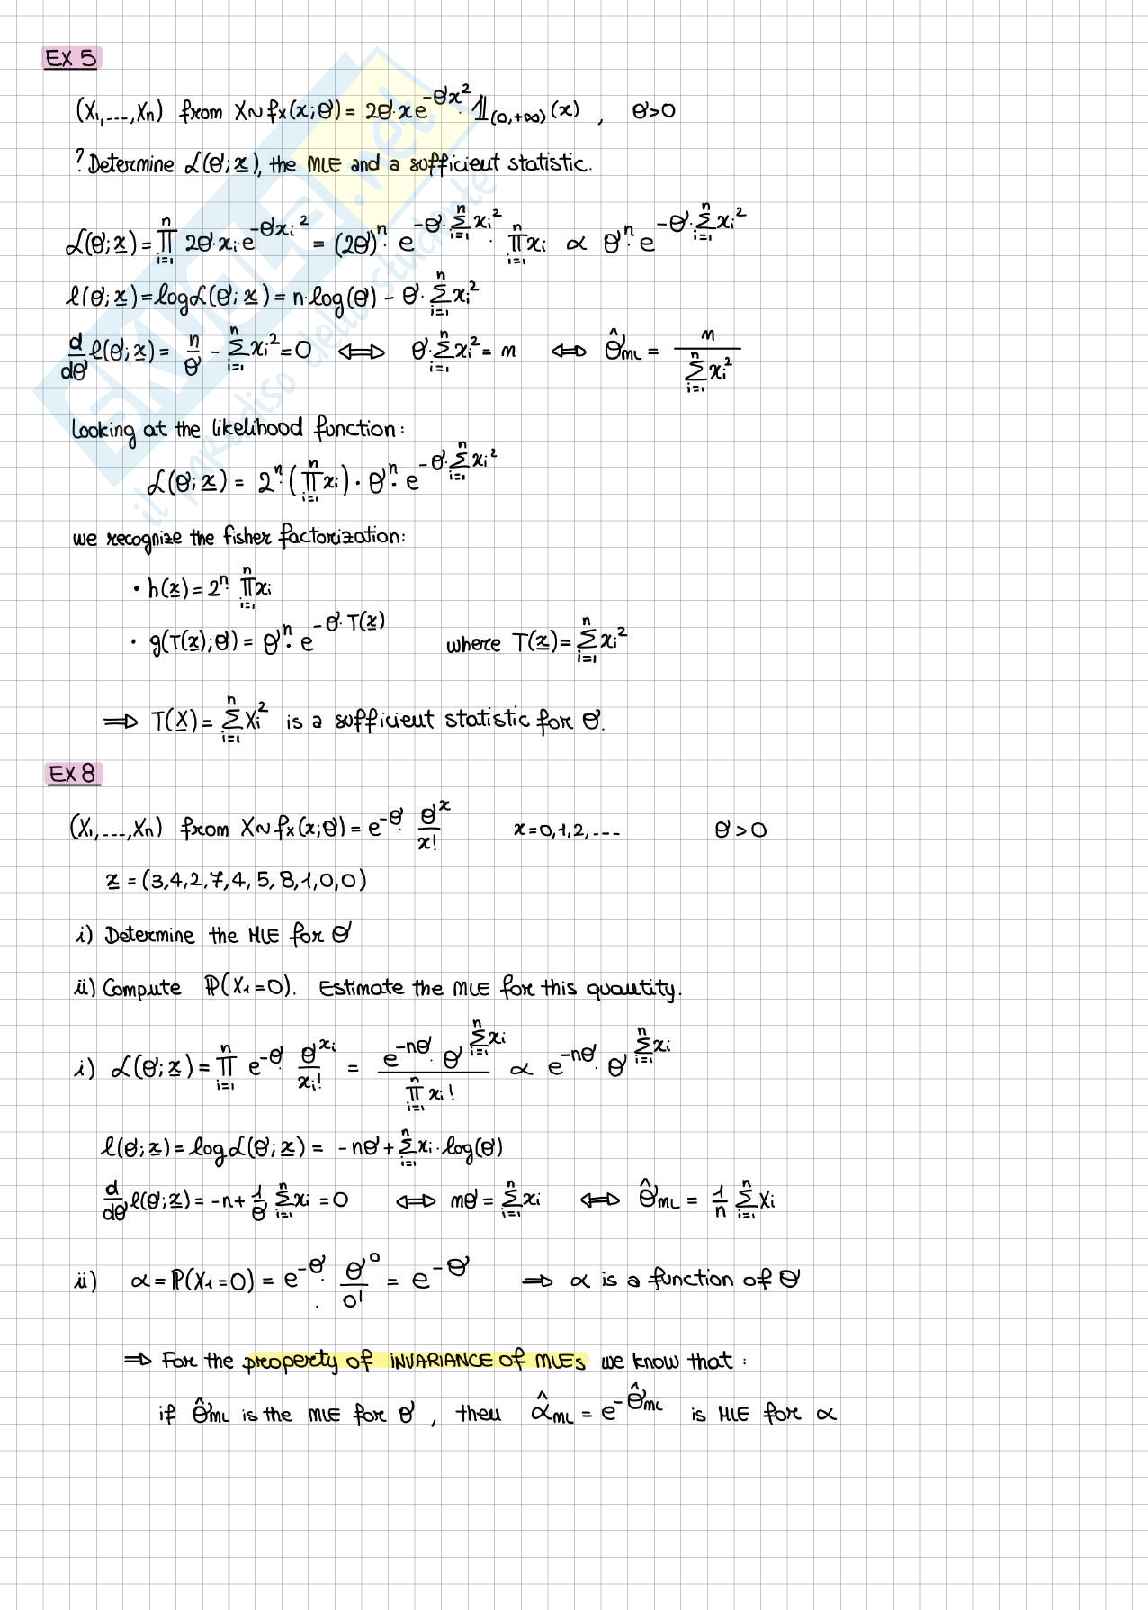 EX 5
(X₁,...,Xn) from X∼fx(x;θ) = 2θ·x e^{-θx²}·𝟙_{(0,+∞)}(x) , θ>0
? Determine ℒ(θ;x), the MLE and a sufficient statistic.
ℒ(θ;x) = ∏_{i=1}^{n} 2θ·xᵢ e^{-θxᵢ²} = (2θ)ⁿ· e^{-θ·∑_{i=1}^{n} xᵢ²}· ∏_{i=1}^{n} xᵢ ∝ θⁿ· e^{-θ·∑_{i=1}^{n} xᵢ²}
ℓ(θ;x) = logℒ(θ;x) = n·log(θ) - θ·∑_{i=1}^{n} xᵢ²
d/dθ ℓ(θ;x) = n/θ - ∑_{i=1}^{n} xᵢ² = 0 ⇔ θ·∑_{i=1}^{n} xᵢ² = n ⇔ θ̂_ML = n / ∑_{i=1}^{n} xᵢ²
Looking at the likelihood function:
ℒ(θ;x) = 2ⁿ·(∏_{i=1}^{n} xᵢ)·θⁿ· e^{-θ·∑_{i=1}^{n} xᵢ²}
we recognize the fisher factorization:
• h(x) = 2ⁿ· ∏_{i=1}^{n} xᵢ
• g(T(x);θ) = θⁿ· e^{-θ·T(x)} where T(x) = ∑_{i=1}^{n} xᵢ²
⇒ T(X) = ∑_{i=1}^{n} Xᵢ² is a sufficient statistic for θ.
EX 8
(X₁,...,Xn) from X∼fx(x;θ) = e^{-θ}· θ^x/x! x=0,1,2,... θ>0
x = (3,4,2,7,4,5,8,1,0,0)
i) Determine the MLE for θ
ii) Compute ℙ(X₁=0). Estimate the MLE for this quantity.
i) ℒ(θ;x) = ∏_{i=1}^{n} e^{-θ}· θ^{xᵢ}/xᵢ! = e^{-nθ}· θ^{∑_{i=1}^{n} xᵢ} / ∏_{i=1}^{n} xᵢ! ∝ e^{-nθ}· θ^{∑_{i=1}^{n} xᵢ}
ℓ(θ;x) = logℒ(θ;x) = -nθ + ∑_{i=1}^{n} xᵢ·log(θ)
d/dθ ℓ(θ;x) = -n + 1/θ· ∑_{i=1}^{n} xᵢ = 0 ⇔ nθ = ∑_{i=1}^{n} xᵢ ⇔ θ̂_ML = 1/n ∑_{i=1}^{n} Xᵢ
ii) α = ℙ(X₁=0) = e^{-θ}· θ⁰/0! = e^{-θ} ⇒ α is a function of θ
⇒ For the property of INVARIANCE of MLEs we know that:
if θ̂_ML is the MLE for θ, then α̂_ML = e^{-θ̂_ML} is MLE for α
SKUOLA.net
il paradiso dello studente